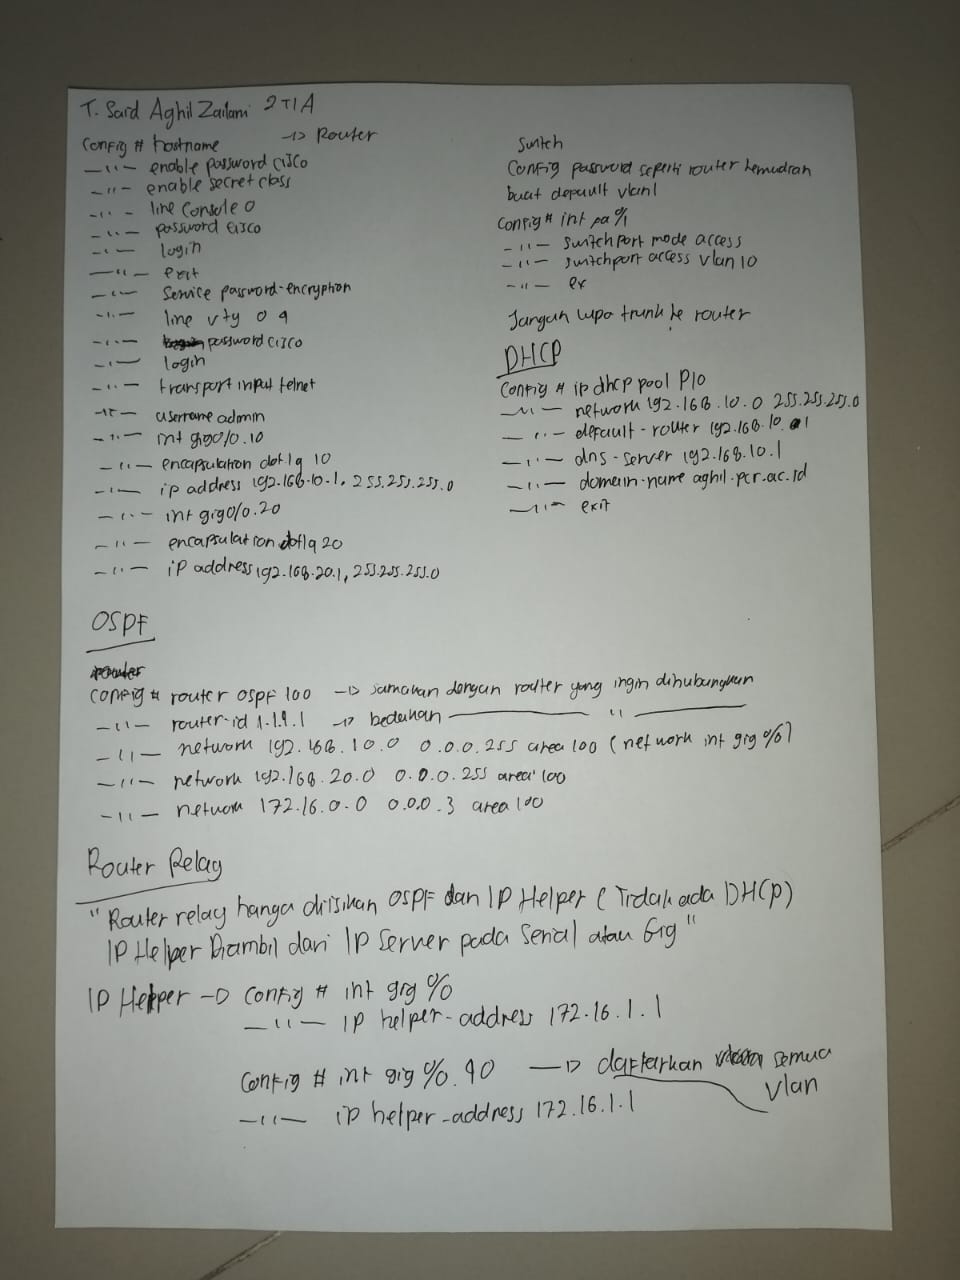 T. Said Aghil Zailani 2TIA
Config # hostname -> Router
—"— enable password cisco
—"— enable secret class
—"— line console 0
—"— password cisco
—"— login
—"— exit
—"— Service password-encryption
—"— line vty 0 4
—"— password cisco
—"— login
—"— transport input telnet
—"— username admin
—"— int gig0/0.10
—"— encapsulation dot1q 10
—"— ip address 192.168.10.1, 255.255.255.0
—"— int gig0/0.20
—"— encapsulation dot1q 20
—"— ip address 192.168.20.1, 255.255.255.0
Switch
Config password seperti router kemudian
buat default vlan1
Config # int fa0/1
—"— switchport mode access
—"— switchport access vlan 10
—"— ex
Jangan lupa trunk ke router
DHCP
Config # ip dhcp pool P10
—"— network 192.168.10.0 255.255.255.0
—"— default-router 192.168.10.1
—"— dns-server 192.168.10.1
—"— domain-name aghil.pcr.ac.id
—"— exit
OSPF
Config # router ospf 100 -> samakan dengan router yang ingin dihubungkan
—"— router-id 1.1.1.1 -> bedakan ——— " ———
—"— network 192.168.10.0 0.0.0.255 area 100 (network int gig 0/0)
—"— network 192.168.20.0 0.0.0.255 area 100
—"— network 172.16.0.0 0.0.0.3 area 100
Router Relay
"Router relay hanya diisikan OSPF dan IP Helper (Tidak ada DHCP)
IP Helper Diambil dari IP Server pada Serial atau Gig"
IP Helper -> Config # int gig 0/0
—"— IP helper-address 172.16.1.1
Config # int gig 0/0.40 -> daftarkan semua
vlan
—"— ip helper-address 172.16.1.1